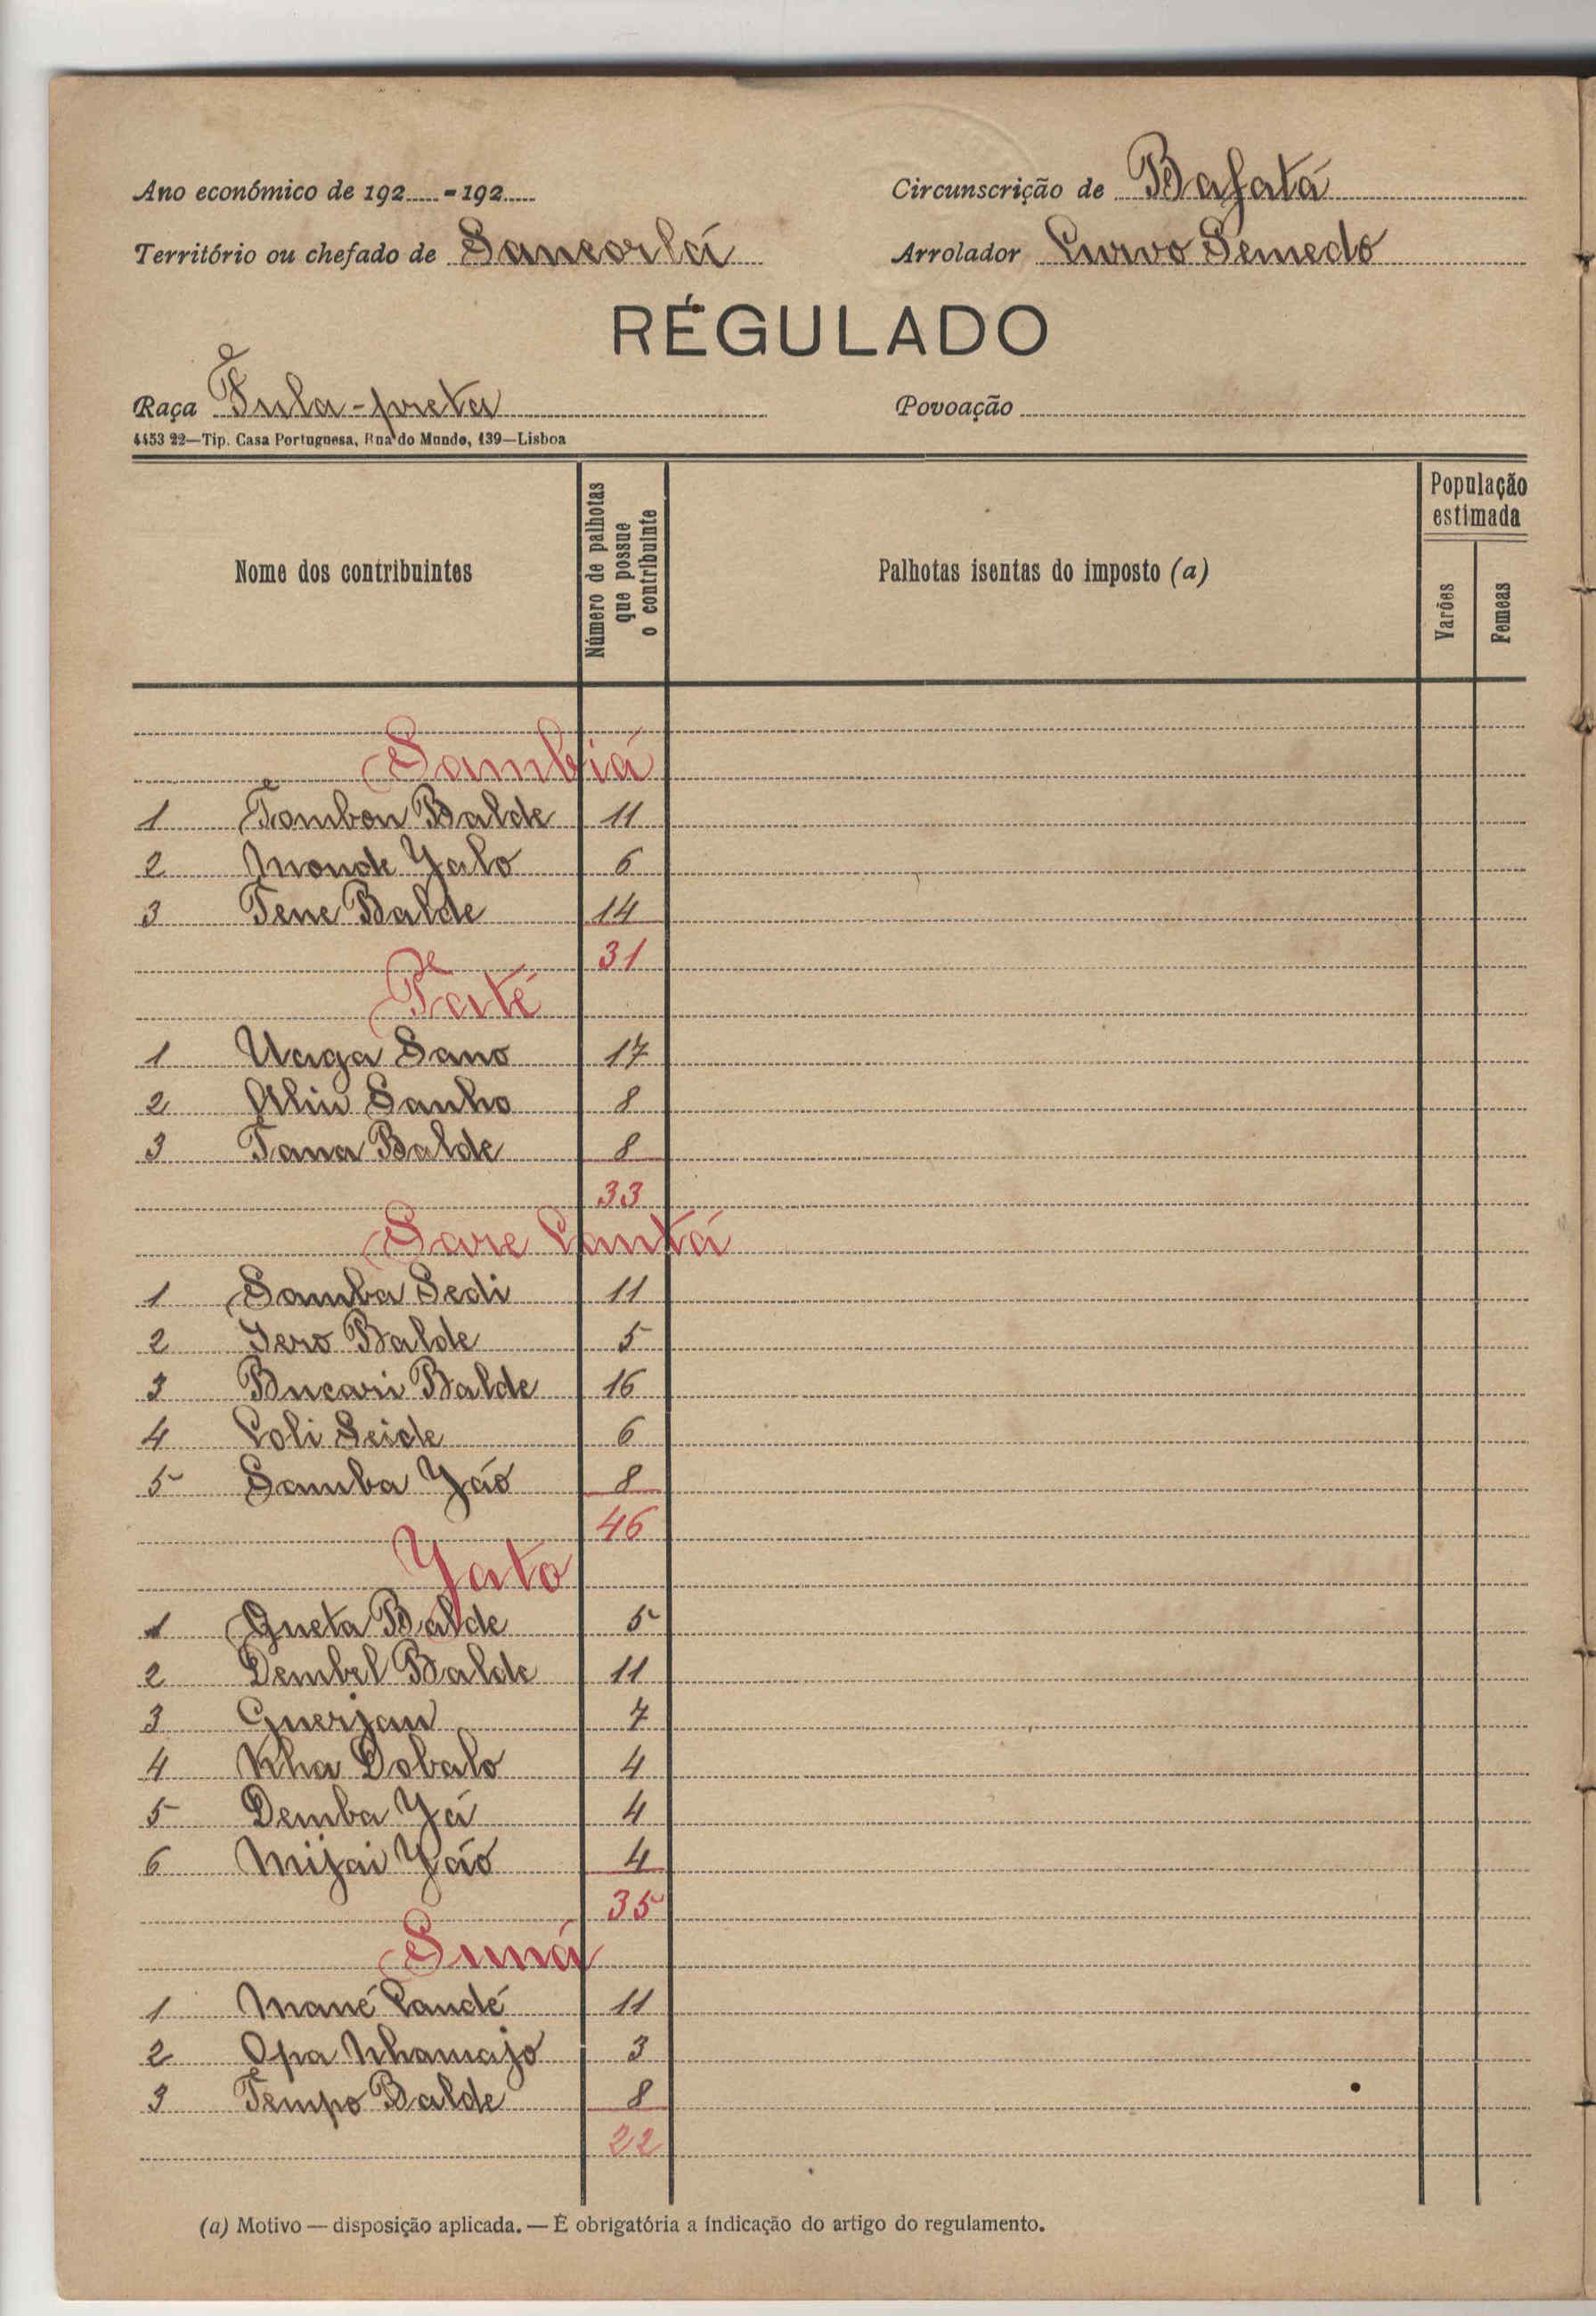 Ano económico de 192.....-192.....
Circunscrição de Bafatá
Território ou chefado de Sancorlá
Arrolador Curvo Semedo
RÉGULADO
Raça Fula-preta
Povoação
4453 22—Tip. Casa Portuguesa, Rua do Mundo, 139—Lisboa
Nome dos contribuintes
Número de palhotas que possue o contribuinte
Palhotas isentas do imposto (a)
População estimada
Varões
Femeas
Sambiá
1 Tombon Balde 11
2 Monde Jalo 6
3 Tene Balde 14
31
Faté
1 Uaga Sano 17
2 Aliu Sanho 8
3 Tana Balde 8
33
Sare Cantá
1 Samba Sedi 11
2 Iero Balde 5
3 Bucari Balde 16
4 Coli Seide 6
5 Samba Jáo 8
46
Jato
1 Gueta Balde 5
2 Dembel Balde 11
3 Guerjan 7
4 Kha Dobalo 4
5 Demba Já 4
6 Mijai Jáo 4
35
Suná
1 Mané Candé 11
2 Opa Nhamajo 3
3 Tempo Balde 8
22
(a) Motivo — disposição aplicada. — É obrigatória a indicação do artigo do regulamento.